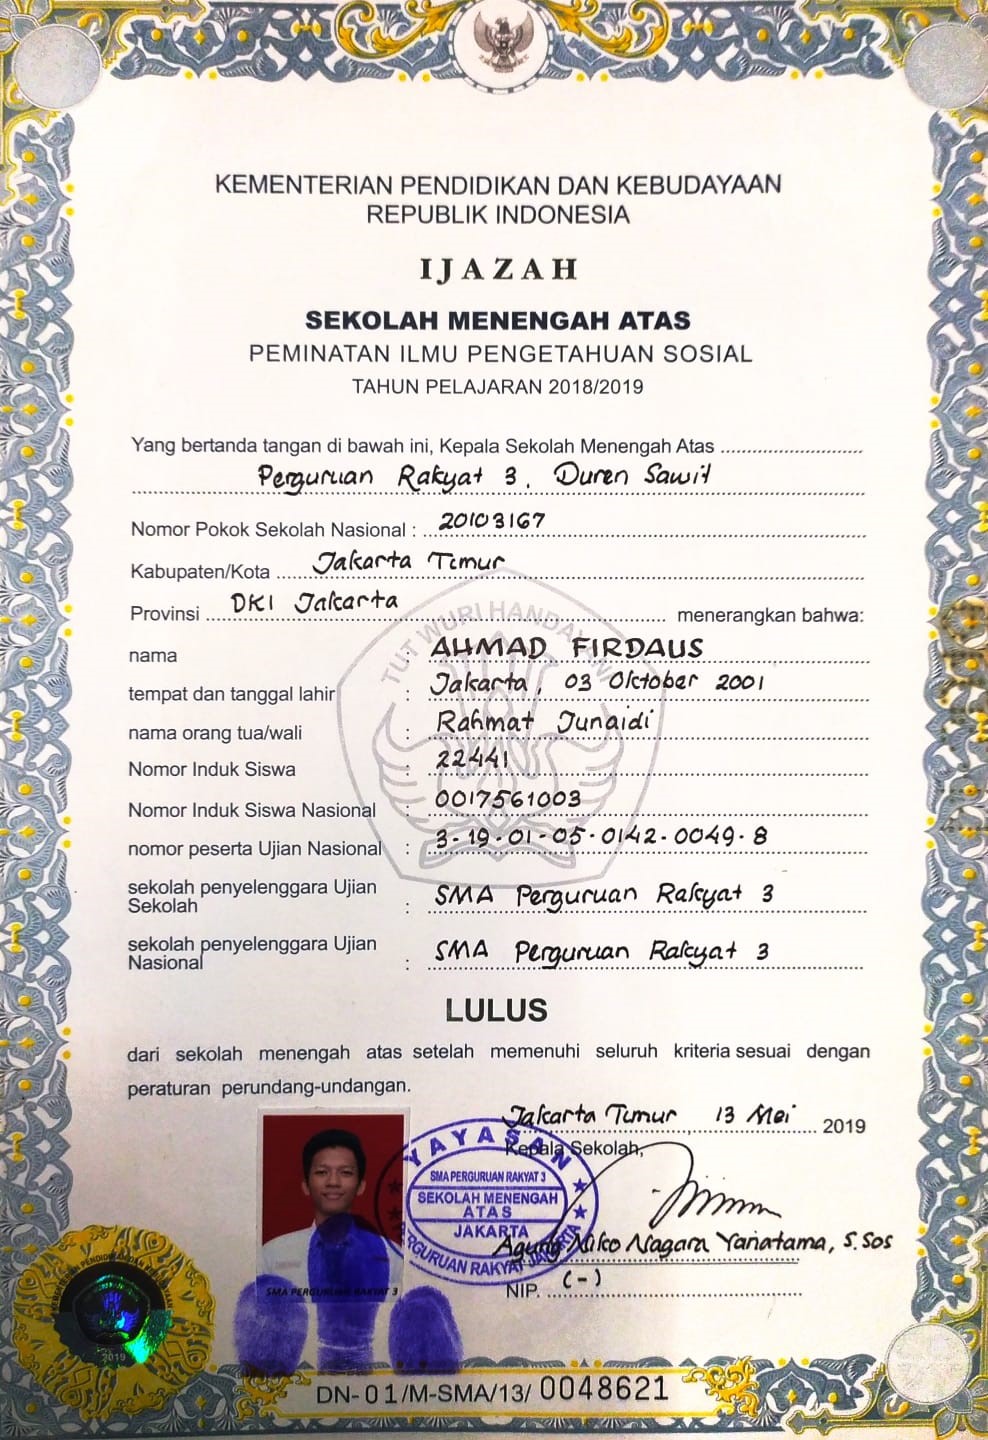 KEMENTERIAN PENDIDIKAN DAN KEBUDAYAAN
REPUBLIK INDONESIA
IJAZAH
SEKOLAH MENENGAH ATAS
PEMINATAN ILMU PENGETAHUAN SOSIAL
TAHUN PELAJARAN 2018/2019
Yang bertanda tangan di bawah ini, Kepala Sekolah Menengah Atas
Perguruan Rakyat 3, Duren Sawit
Nomor Pokok Sekolah Nasional : 20103167
Kabupaten/Kota Jakarta Timur
Provinsi DKI Jakarta menerangkan bahwa:
TUT WURI HANDAYANI
nama : AHMAD FIRDAUS
tempat dan tanggal lahir : Jakarta, 03 Oktober 2001
nama orang tua/wali : Rahmat Junaidi
Nomor Induk Siswa : 22441
Nomor Induk Siswa Nasional : 0017561003
nomor peserta Ujian Nasional : 3-19-01-05-0142-0049-8
sekolah penyelenggara Ujian
Sekolah : SMA Perguruan Rakyat 3
sekolah penyelenggara Ujian
Nasional : SMA Perguruan Rakyat 3
LULUS
dari sekolah menengah atas setelah memenuhi seluruh kriteria sesuai dengan
peraturan perundang-undangan.
Jakarta Timur, 13 Mei 2019
Kepala Sekolah,
YAYASAN
SMA PERGURUAN RAKYAT 3
SEKOLAH MENENGAH
ATAS
JAKARTA
PERGURUAN RAKYAT JAKARTA
Agung Niko Nagara Yanatama, S.Sos
NIP. (-)
SMA PERGURUAN RAKYAT 3
2019
DN-01/M-SMA/13/0048621